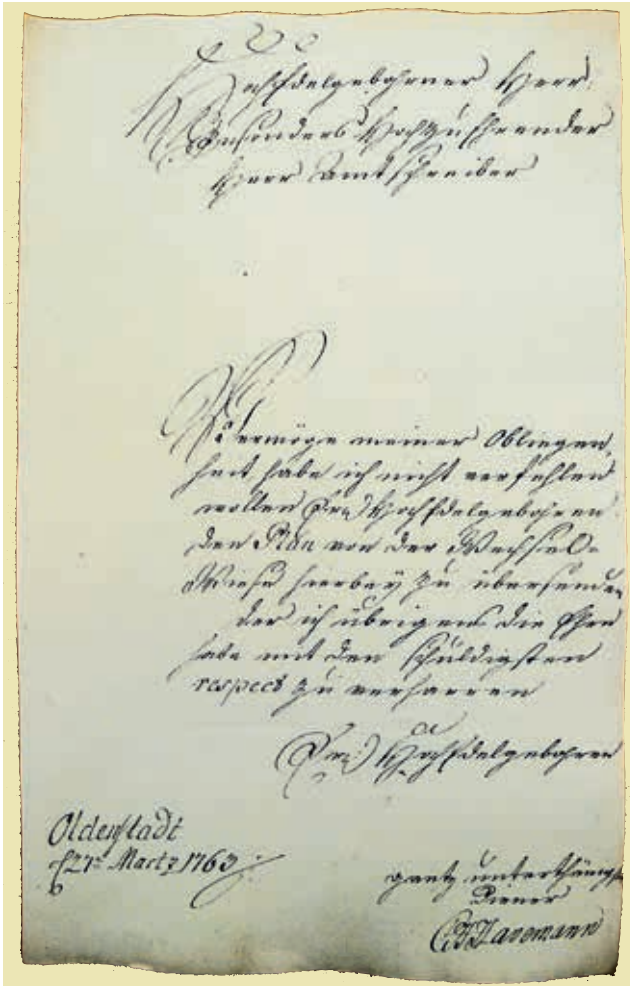 HochEdelgebohrner Herr
Besonders Hochzuehrender
Herr Amtschreiber
Vermöge meiner Obliegen,
heit habe ich nicht verfehlen
wollen Ew: HochEdelgebohren
den Plan von der Wechsel-
Wiese hierbey zu übersenden
der ich übrigens die Ehre
habe mit den schuldigsten
respect zu verharren
Ew: HochEdelgebohren
Oldenstadt
d 27t Martz 1763
gantz unterthänigster
Diener